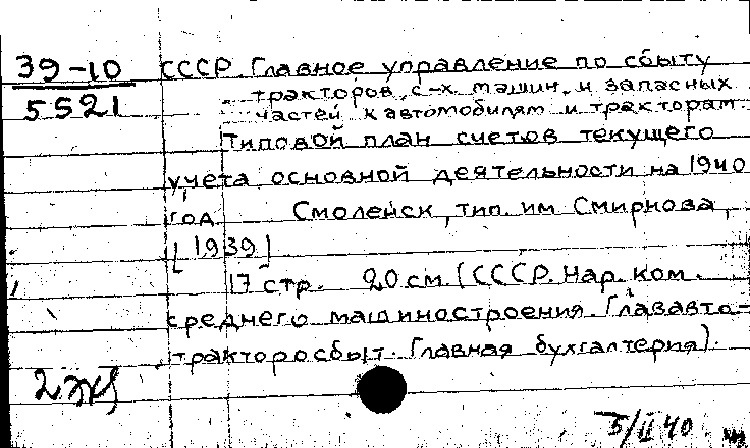 39-10 СССР. Главное управление по сбыту
5521 тракторов, с-х. машин и запасных
частей к автомобилям и тракторам.
Типовой план счетов текущего
учета основной деятельности на 1940
год Смоленск, тип. им Смирнова,
[1939]
17 стр. 20 см. (СССР. Нар. ком.
среднего машиностроения. Глававто-
тракторосбыт. Главная бухгалтерия).
5/II 40